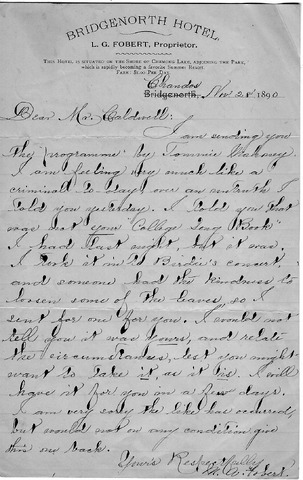 BRIDGENORTH HOTEL,
L. G. FOBERT, Proprietor.
THIS HOTEL IS SITUATED ON THE SHORE OF CHEMONG LAKE, ADJOINING THE PARK,
which is rapidly becoming a favorite Summer Resort.
TERMS: $1.00 PER DAY.
Chandos
Bridgenorth, Nov 28 1890
Dear Mr. Caldwell:
I am sending you
the programme by Tommie Mahoney.
I am feeling very much like a
criminal to day over an untruth I
told you yesterday. I told you that
was not your College Song Book
I had last night, but it was.
I took it into Birdie's concert,
and someone had the kindness to
loosen some of the leaves, so I
sent for one for you. I would not
tell you it was yours, and relate
the circumstances, lest you might
want to take it, as it is. I will
have it for you in a few days.
I am very sorry the like has occurred,
but would not on any condition give
this one back.
Yours Respectfully
Fobert.